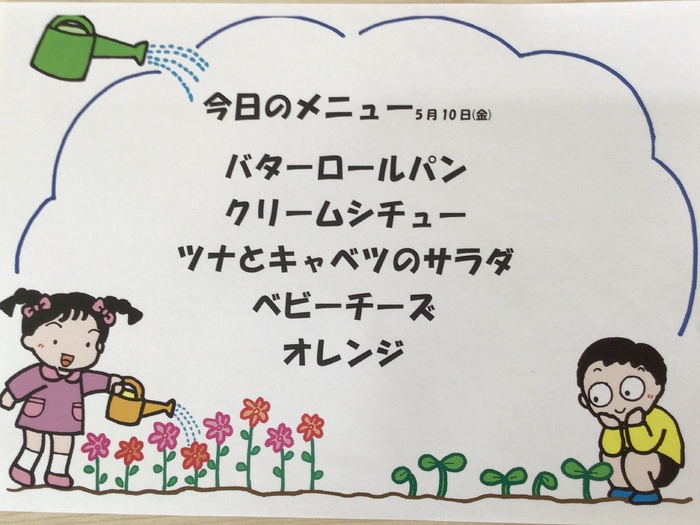 今日のメニュー5月10日(金)
バターロールパン
クリームシチュー
ツナとキャベツのサラダ
ベビーチーズ
オレンジ